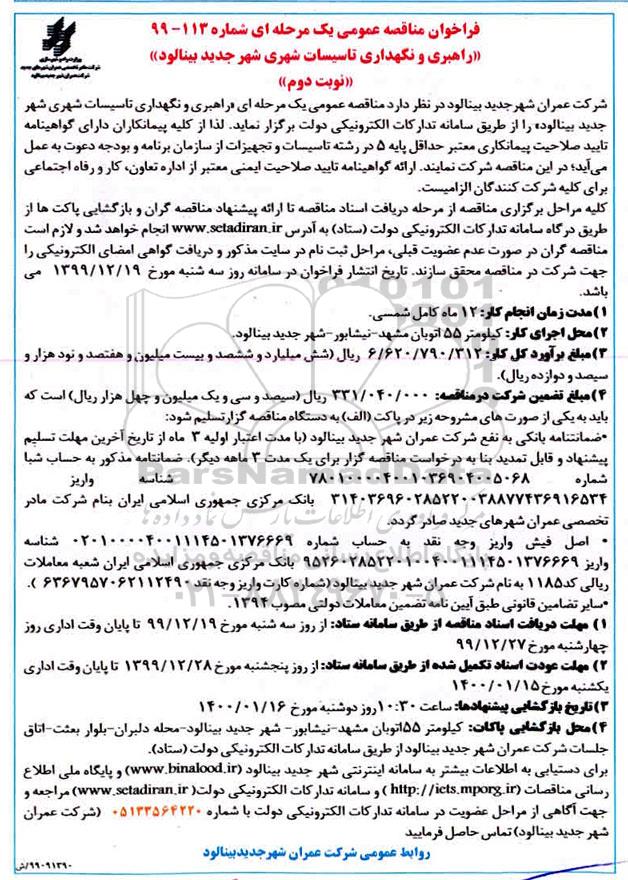 فراخوان مناقصه عمومی یک مرحله ای شماره ۱۱۳- ۹۹
«راهبری و نگهداری تاسیسات شهری شهر جدید بینالود»
«نوبت دوم»
شرکت عمران شهر جدید بینالود در نظر دارد مناقصه عمومی یک مرحله ای «راهبری و نگهداری تاسیسات شهری شهر
جدید بینالود» را از طریق سامانه تدارکات الکترونیکی دولت برگزار نماید. لذا از کلیه پیمانکاران دارای گواهینامه
تایید صلاحیت پیمانکاری معتبر حداقل پایه ۵ در رشته تاسیسات و تجهیزات از سازمان برنامه و بودجه دعوت به عمل
می‌آید؛ در این مناقصه شرکت نمایند. ارائه گواهینامه تایید صلاحیت ایمنی معتبر از اداره تعاون، کار و رفاه اجتماعی
برای کلیه شرکت کنندگان الزامیست.
کلیه مراحل برگزاری مناقصه از مرحله دریافت اسناد مناقصه تا ارائه پیشنهاد مناقصه گران و بازگشایی پاکت ها از
طریق درگاه سامانه تدارکات الکترونیکی دولت (ستاد) به آدرس www.setadiran.ir انجام خواهد شد و لازم است
مناقصه گران در صورت عدم عضویت قبلی، مراحل ثبت نام در سایت مذکور و دریافت گواهی امضای الکترونیکی را
جهت شرکت در مناقصه محقق سازند. تاریخ انتشار فراخوان در سامانه روز سه شنبه مورخ ۱۳۹۹/۱۲/۱۹ می
باشد.
۱)مدت زمان انجام کار: ۱۲ ماه کامل شمسی.
۲)محل اجرای کار: کیلومتر ۵۵ اتوبان مشهد-نیشابور-شهر جدید بینالود.
۳)مبلغ برآورد کل کار: ۶/۶۲۰/۷۹۰/۳۱۲ ریال (شش میلیارد و ششصد و بیست میلیون و هفتصد و نود هزار و
سیصد و دوازده ریال).
۴)مبلغ تضمین شرکت درمناقصه: ۳۳۱/۰۴۰/۰۰۰ ریال (سیصد و سی و یک میلیون و چهل هزار ریال) است که
باید به یکی از صورت های مشروحه زیر در پاکت (الف) به دستگاه مناقصه گزار تسلیم شود:
•ضمانتنامه بانکی به نفع شرکت عمران شهر جدید بینالود (با مدت اعتبار اولیه ۳ ماه از تاریخ آخرین مهلت تسلیم
پیشنهاد و قابل تمدید بنا به درخواست مناقصه گزار برای یک مدت ۳ ماهه دیگر). ضمانتنامه مذکور به حساب شبا
شماره ۷۸۰۱۰۰۰۰۴۰۰۱۰۳۶۹۰۴۰۰۵۰۶۸ شناسه واریز
۳۱۴۰۳۶۹۶۰۲۸۵۲۲۰۰۳۸۸۷۷۴۳۶۹۱۶۵۳۴ بانک مرکزی جمهوری اسلامی ایران بنام شرکت مادر
تخصصی عمران شهرهای جدید صادر گردد.
• اصل فیش واریز وجه نقد به حساب شماره ۰۲۰۱۰۰۰۰۴۰۰۱۱۱۴۵۰۱۳۷۶۶۶۹ شناسه
واریز ۹۵۲۶۰۲۸۵۲۲۰۱۰۰۴۰۰۱۱۱۴۵۰۱۳۷۶۶۶۹ بانک مرکزی جمهوری اسلامی ایران شعبه معاملات
ریالی کد۱۱۸۵ به نام شرکت عمران شهر جدید بینالود (شماره کارت واریز وجه نقد ۶۳۶۷۹۵۷۰۶۲۱۱۲۴۹۰ ).
•سایر تضامین قانونی طبق آیین نامه تضمین معاملات دولتی مصوب ۱۳۹۴.
۱) مهلت دریافت اسناد مناقصه از طریق سامانه ستاد: از روز سه شنبه مورخ ۹۹/۱۲/۱۹ تا پایان وقت اداری روز
چهارشنبه مورخ ۹۹/۱۲/۲۷
۲) مهلت عودت اسناد تکمیل شده از طریق سامانه ستاد: از روز پنجشنبه مورخ ۱۳۹۹/۱۲/۲۸ تا پایان وقت اداری
یکشنبه مورخ ۱۴۰۰/۰۱/۱۵
۳)تاریخ بازگشایی پیشنهادها: ساعت ۱۰:۳۰ روز دوشنبه مورخ ۱۴۰۰/۰۱/۱۶
۴)محل بازگشایی پاکات: کیلومتر ۵۵اتوبان مشهد-نیشابور- شهر جدید بینالود-محله دلبران-بلوار بعثت-اتاق
جلسات شرکت عمران شهر جدید بینالود از طریق سامانه تدارکات الکترونیکی دولت (ستاد).
برای دستیابی به اطلاعات بیشتر به سامانه اینترنتی شهر جدید بینالود (www.binalood.ir) و پایگاه ملی اطلاع
رسانی مناقصات (http://iets.mporg.ir ) و سامانه تدارکات الکترونیکی دولت( www.setadiran.ir) مراجعه و
جهت آگاهی از مراحل عضویت در سامانه تدارکات الکترونیکی دولت با شماره ۰۵۱۳۳۵۶۴۲۲۰ (شرکت عمران
شهر جدید بینالود) تماس حاصل فرمایید
روابط عمومی شرکت عمران شهرجدیدبینالود
۹۹۰۹۱۳۹۰/ش
ParsNamadData
۰۲۱-۸۸۳۴۹۶۷۰-۵